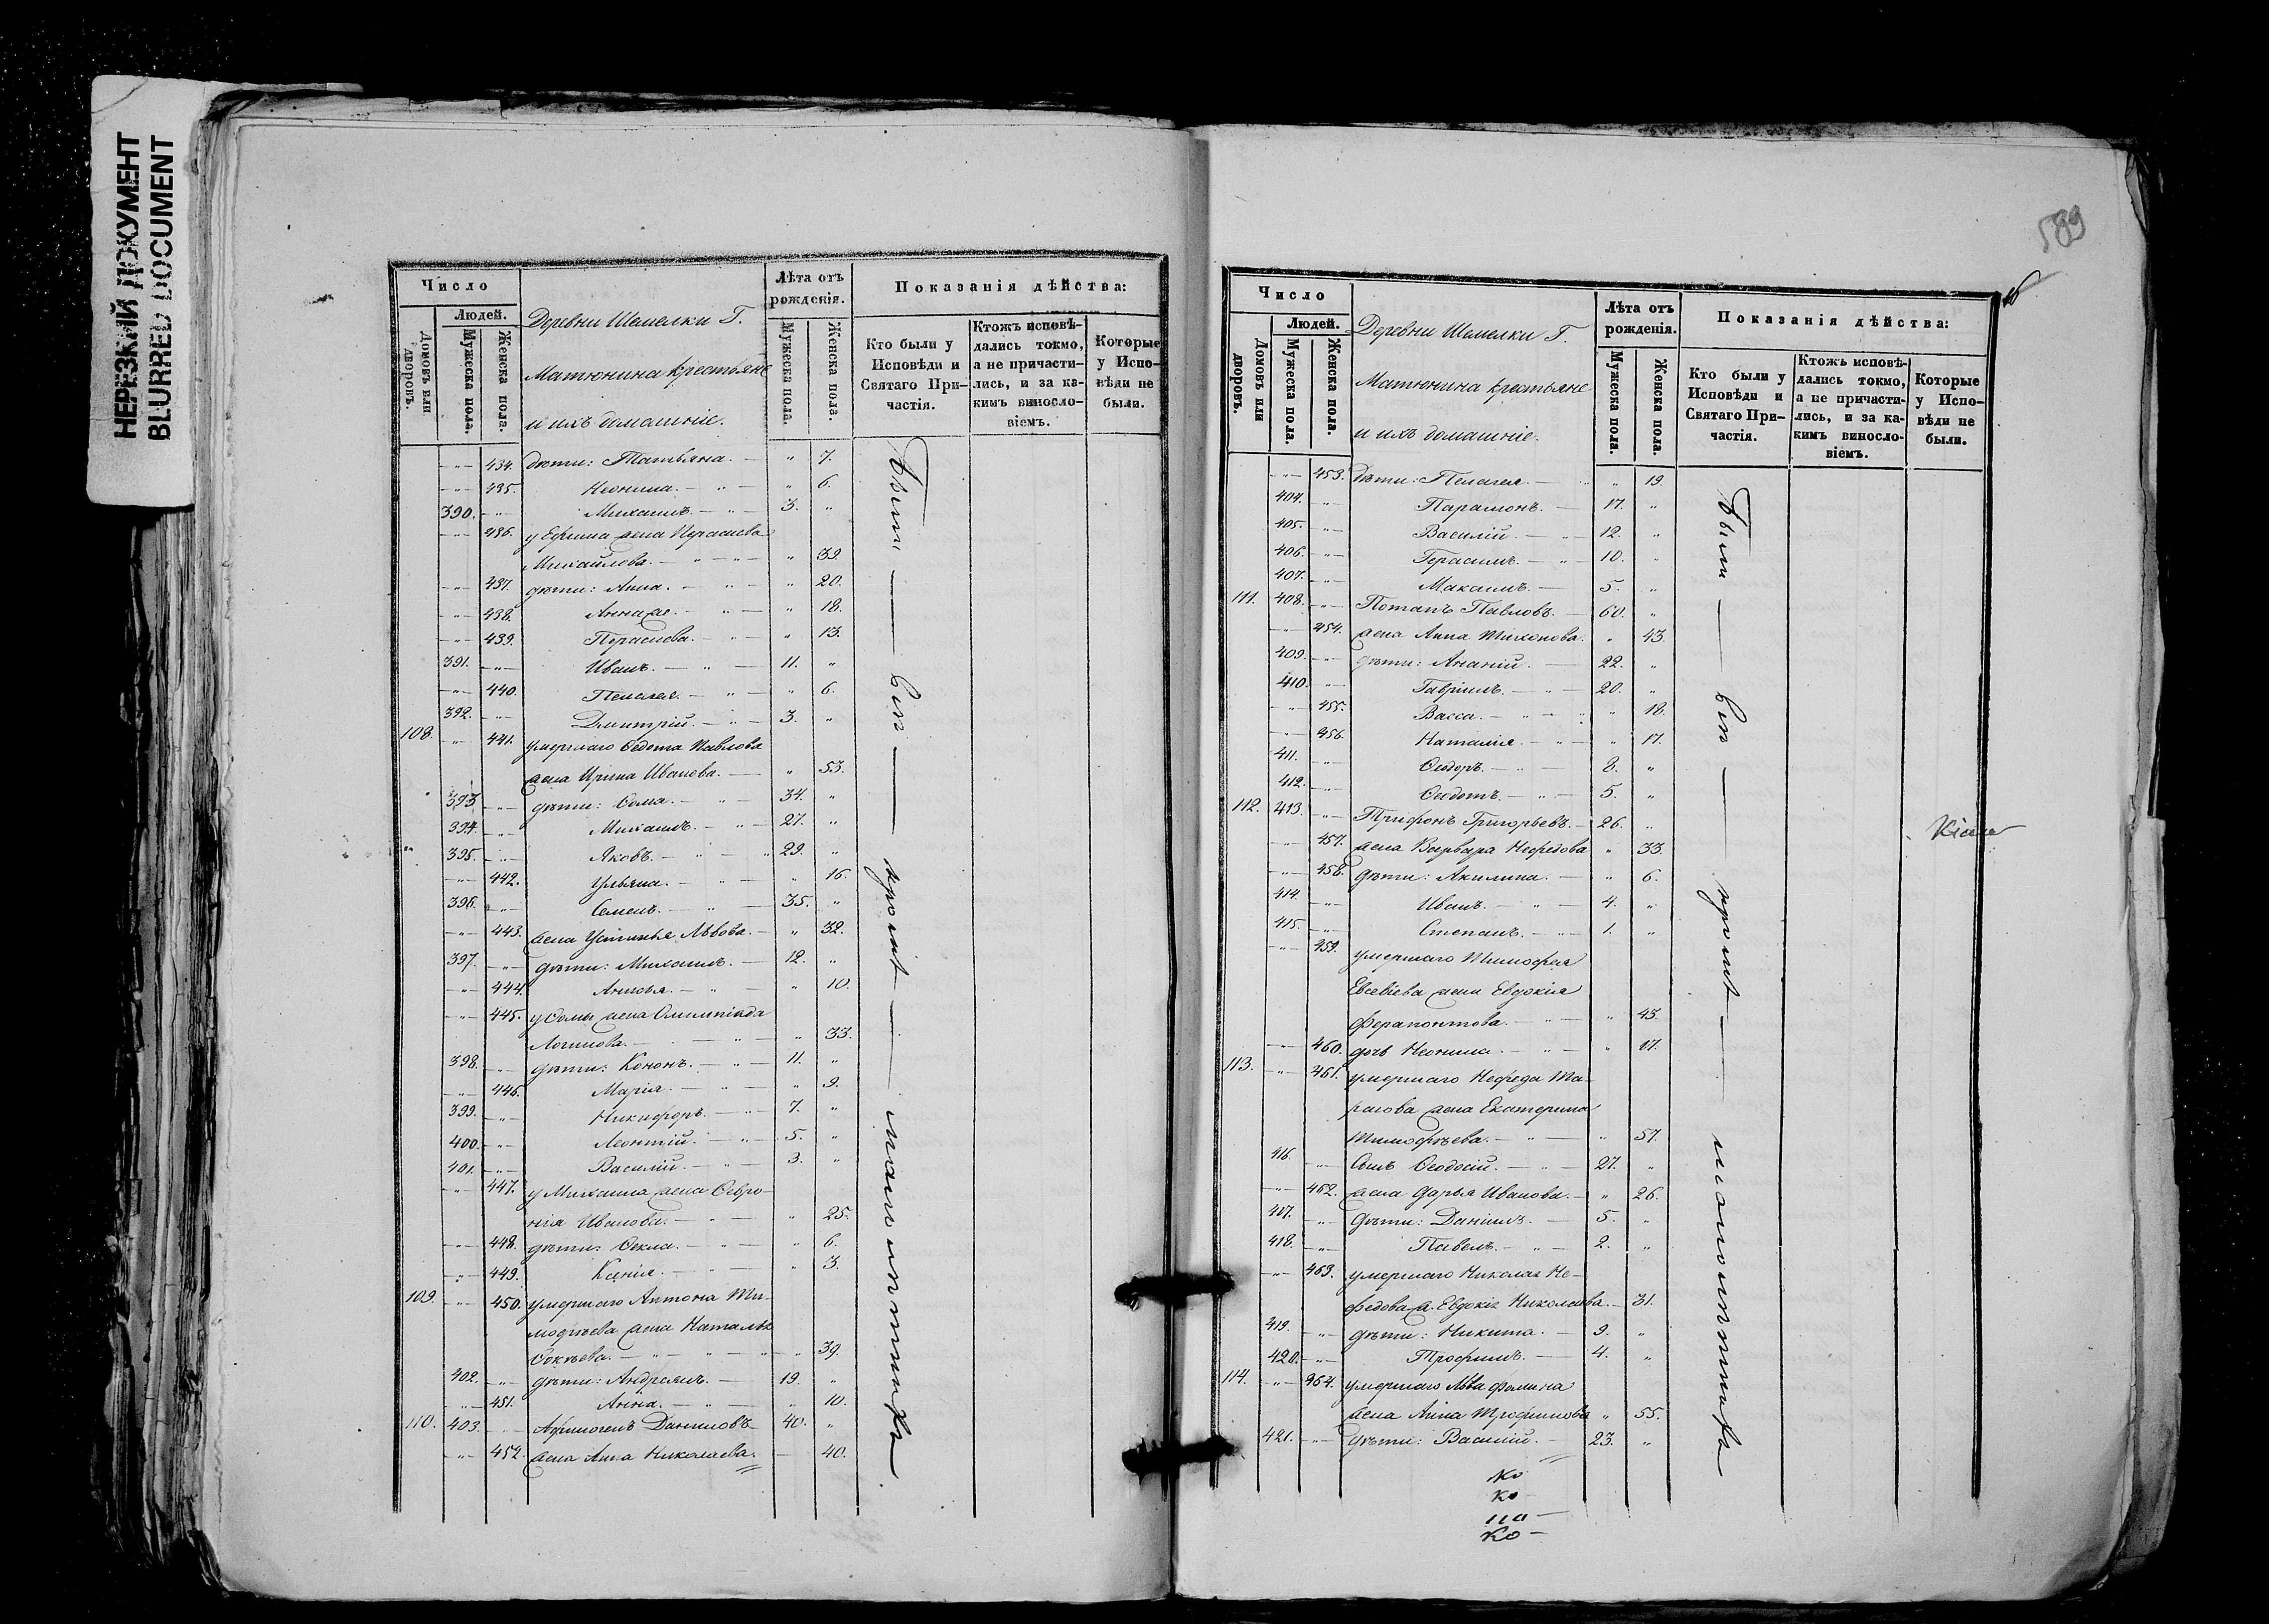 НЕРЕЗКИЙ ДОКУМЕНТ
BLURRED DOCUMENT
Число
Людей.
Домовъ или дворовъ.
Мужеска пола.
Женска пола.
Деревни Шемелки Г.
Матюнина крестьяне
и ихъ домашніе.
Лѣта отъ рожденія.
Мужеска пола.
Женска пола.
Показанія дѣйства:
Кто были у Исповѣди и Святаго Причастія.
Ктожъ исповѣдались токмо, а не причастились, и за какимъ винословіемъ.
Которые у Исповѣди не были.
434. дѣти: Татьяна. 7.
435. Неонила. 6.
390. Михаилъ. 3.
436. у Ефима жена Параскева
Михайлова. 39.
437. дѣти: Анна. 20.
438. Анна же. 18.
439. Параскева. 13.
391. Иванъ. 11.
440. Пелагея. 6.
392. Дмитрій. 3.
108. 441. умершаго Ѳедота Павлова
жена Ирина Иванова. 53.
393 дѣти: Ѳома. 34.
394. Михаилъ. 27.
395. Яковъ. 29.
442. Ульяна. 16.
396. Семенъ. 35.
443. жена Устинья Львова. 32.
397. дѣти: Михаилъ. 12.
444. Анисья. 10.
445. у Ѳомы жена Олимпіада
Логинова. 33.
398. дѣти: Кононъ. 11.
446. Марія. 9.
399. Никифоръ. 7.
400. Леонтій. 5.
401. Василій. 3.
447. у Михаила жена Ѳевро-
нія Иванова. 25.
448. дѣти: Ѳекла. 6.
449. Ксенія. 3.
109. 450. умершаго Антона Ти-
мофѣева жена Наталья
Ѳокѣева. 39.
402. дѣти: Андреянъ. 19.
451. Анна. 10.
110. 403. Афиногенъ Даниловъ 40.
452. жена Анна Николаева. 40.
Были — всѣ — кромѣ — малолѣтнихъ
589
Число
Людей.
Домовъ или дворовъ.
Мужеска пола.
Женска пола.
Деревни Шемелки Г.
Матюнина крестьяне
и ихъ домашніе.
Лѣта отъ рожденія.
Мужеска пола.
Женска пола.
Показанія дѣйства:
Кто были у Исповѣди и Святаго Причастія.
Ктожъ исповѣдались токмо, а не причастились, и за какимъ винословіемъ.
Которые у Исповѣди не были.
453. дѣти: Пелагея. 19.
404. Парамонъ. 17.
405. Василій. 12.
406. Герасимъ. 10.
407. Максимъ. 5.
111. 408. Потапъ Павловъ. 60.
454. жена Анна Тихонова. 43.
409. дѣти: Ананій. 22.
410. Гавріилъ. 20.
455. Васса. 18.
456. Наталія. 17.
411. Ѳеодоръ. 8.
412. Ѳеодотъ. 5.
112. 413. Трифонъ Григорьевъ. 26.
457. жена Варвара Нефедова 33.
458. дѣти: Акилина. 6.
414. Иванъ. 4.
415. Степанъ. 1.
459. умершаго Тимофея
Евсевіева жена Евдокія
Ферапонтова. 43.
460. дочь Неонила. 17.
113. 461. умершаго Нефеда Та-
расова жена Екатерина
Тимофѣева. 57.
416. Сынъ Ѳеодосій. 27.
462. жена Дарья Иванова. 26.
417. дѣти: Даніилъ. 5.
418. Павелъ. 2.
463. умершаго Николая Не-
федова ж. Евдокія Николаева. 31.
419. дѣти: Никита. 9.
420. Трофимъ. 4.
114. 464. умершаго Льва Фомина
жена Анна Трофимова 55.
421. дѣти: Василій. 23.
Были — всѣ — кромѣ — малолѣтнихъ